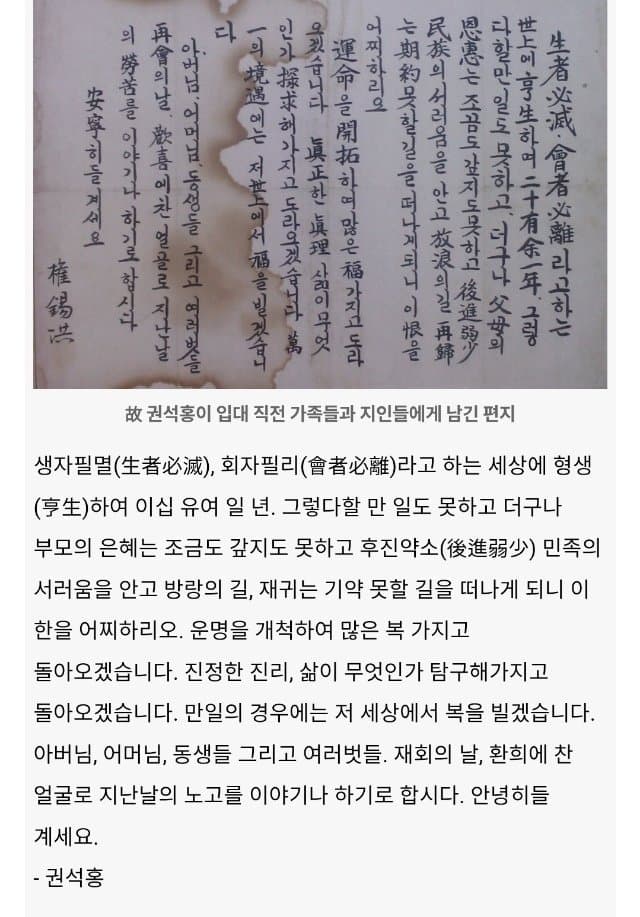 生者必滅, 會者必離라고하는
世上에 亨生하여 二十有余一年. 그렇
다할만 일도 못하고, 더구나 父母의
恩惠는 조꼼도 갚지도못하고 後進弱少
民族의 서러움을 안고 放浪의길 再歸
는 期約못할길을 떠나게되니 이 恨을
어찌하리요
運命을 開拓하여 많은 福가지고 도라
오겠습니다 眞正한 眞理 삶이무엇
인가 探求해가지고 도라오겠습니다 萬
一의 境遇에는 저世上에서 福을 빌겠습니
다
아버님, 어머님, 동생들 그리고 여러벗들
再會의날, 歡喜에찬 얼골로 지난날
의 勞苦를 이야기나 하기로 합시다
安寧히들 계세요
權錫洪
故 권석홍이 입대 직전 가족들과 지인들에게 남긴 편지
생자필멸(生者必滅), 회자필리(會者必離)라고 하는 세상에 형생
(亨生)하여 이십 유여 일 년. 그렇다할 만 일도 못하고 더구나
부모의 은혜는 조금도 갚지도 못하고 후진약소(後進弱少) 민족의
서러움을 안고 방랑의 길, 재귀는 기약 못할 길을 떠나게 되니 이
한을 어찌하리오. 운명을 개척하여 많은 복 가지고
돌아오겠습니다. 진정한 진리, 삶이 무엇인가 탐구해가지고
돌아오겠습니다. 만일의 경우에는 저 세상에서 복을 빌겠습니다.
아버님, 어머님, 동생들 그리고 여러벗들. 재회의 날, 환희에 찬
얼굴로 지난날의 노고를 이야기나 하기로 합시다. 안녕히들
계세요.
- 권석홍